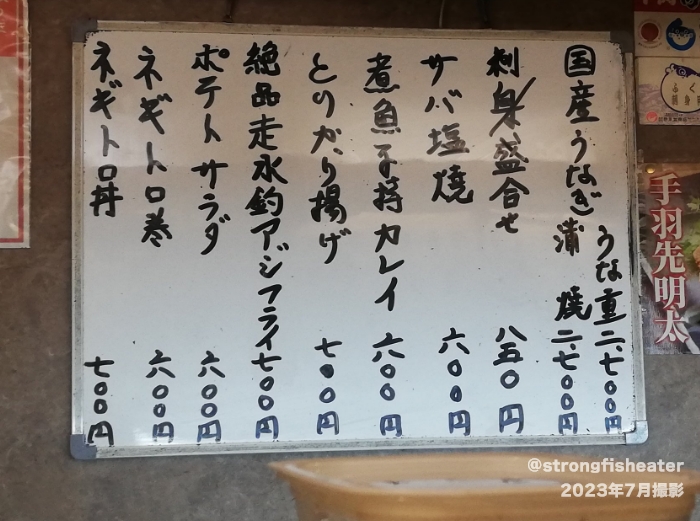 うな重 二、七〇〇円
国産うなぎ蒲焼 二、七〇〇円
刺身盛合せ 八五〇円
サバ塩焼 六〇〇円
煮魚子持カレイ 六〇〇円
とりから揚げ 七〇〇円
絶品走水釣アジフライ 七〇〇円
ポテトサラダ 六〇〇円
ネギトロ巻 六〇〇円
ネギトロ丼 七〇〇円
手羽先明太
@strongfisheater
2023年7月撮影